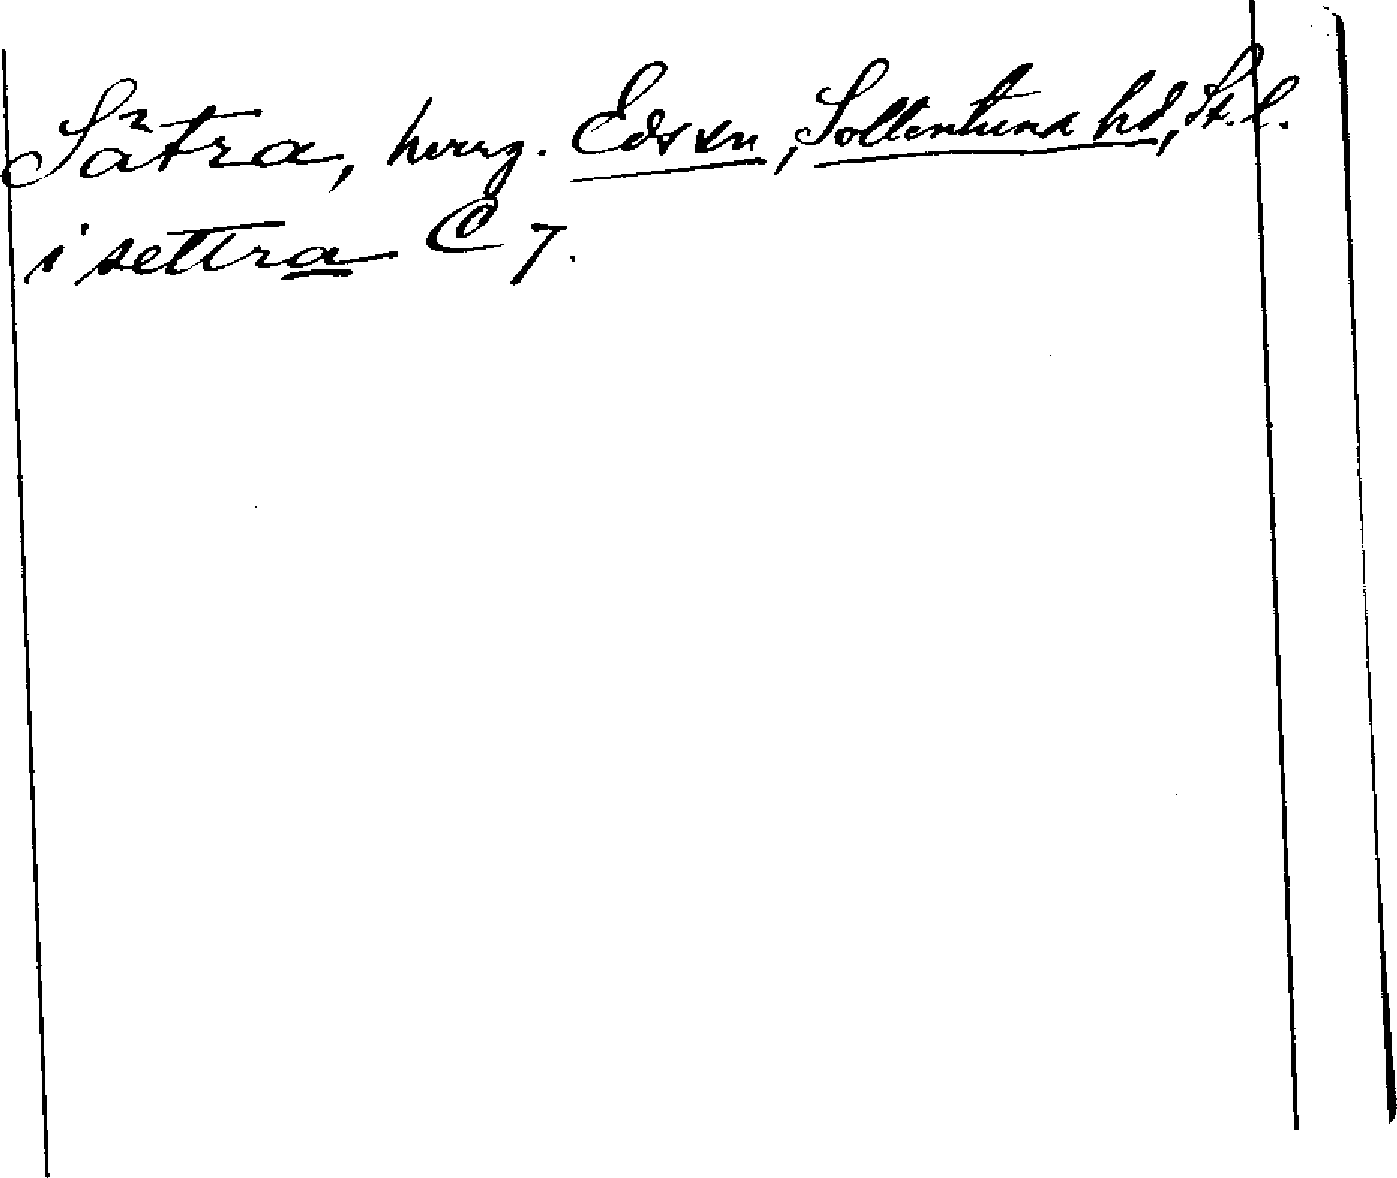 Sätra, herrg. Eds sn, Sollentuna hd, St. l.
i settra C 7.